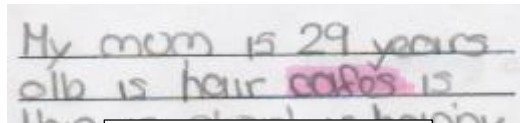 My mom is 29 years
olb is hair cafos is